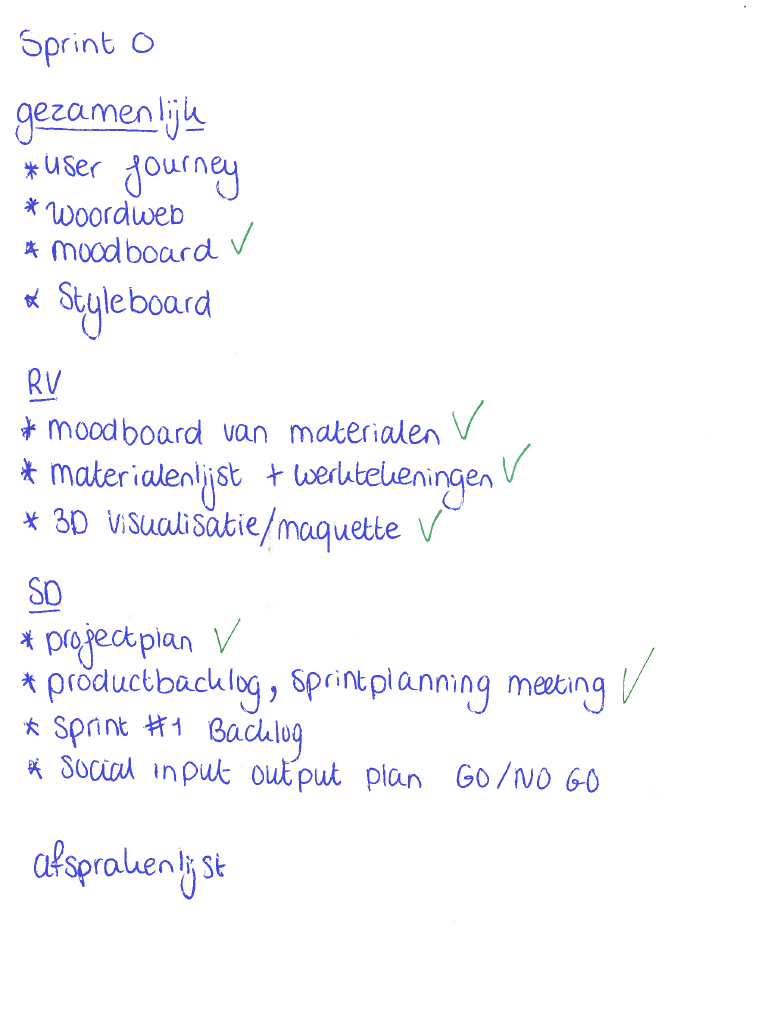 Sprint 0
gezamenlijk
* user journey
* woordweb
* moodboard ✓
* Styleboard
RV
* moodboard van materialen ✓
* materialenlijst + werktekeningen ✓
* 3D visualisatie/maquette ✓
SD
* projectplan ✓
* productbacklog, sprintplanning meeting ✓
* sprint #1 Backlog
* social input output plan GO/NO GO
afsprakenlijst